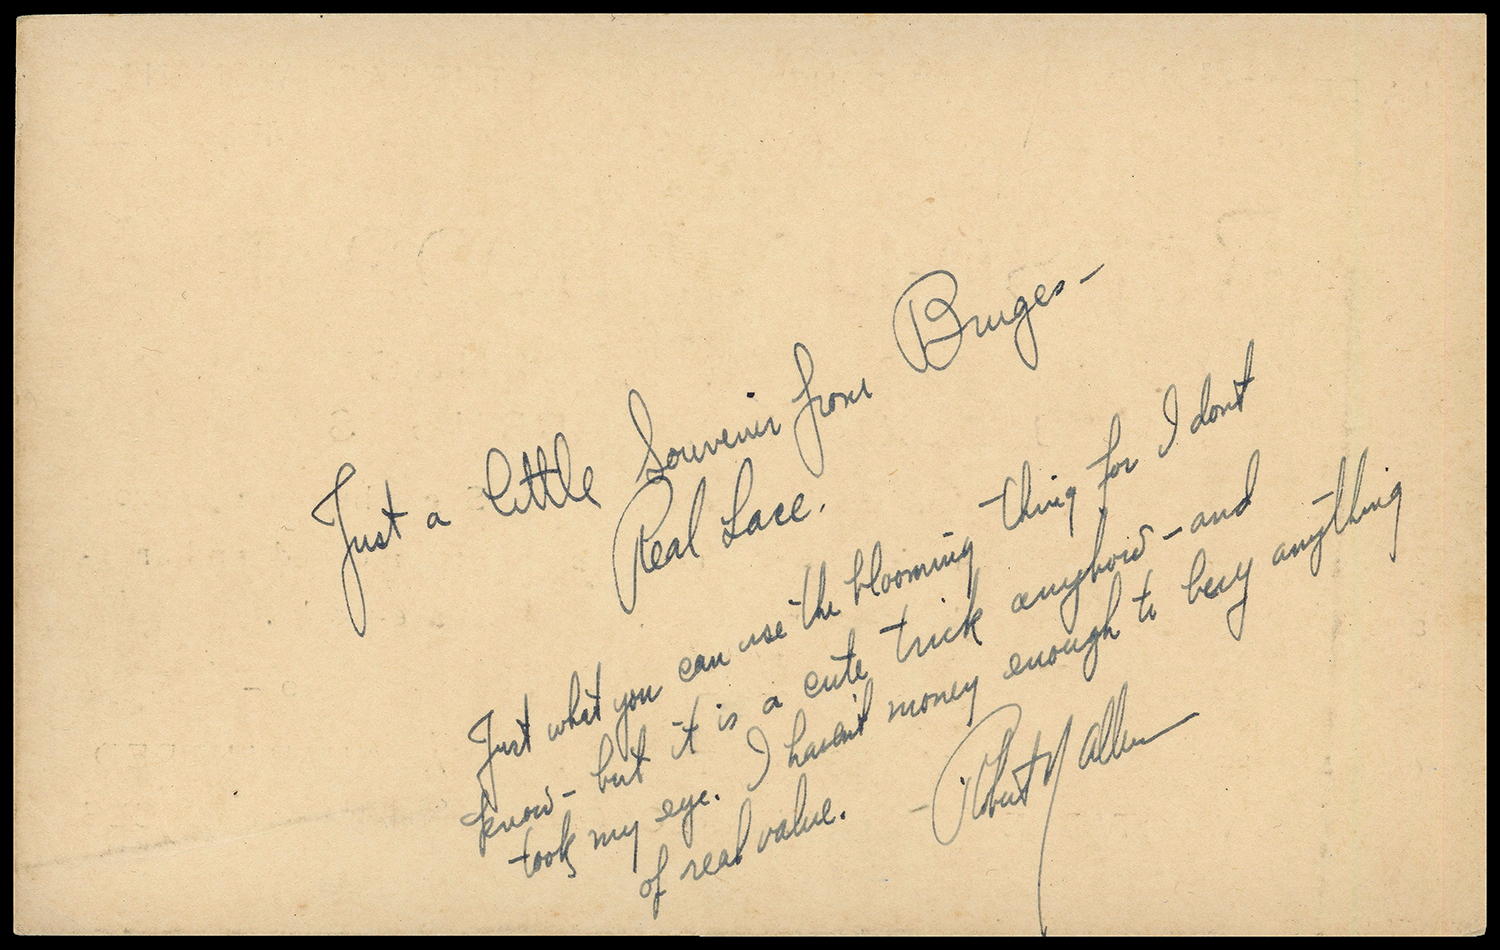 Just a little Souvenir from Bruges —
Real Lace.
Just what you can use the blooming thing for I dont
know - but it is a cute trick anyhow - and
took my eye. I haven't money enough to buy anything
of real value. - Robert Allen